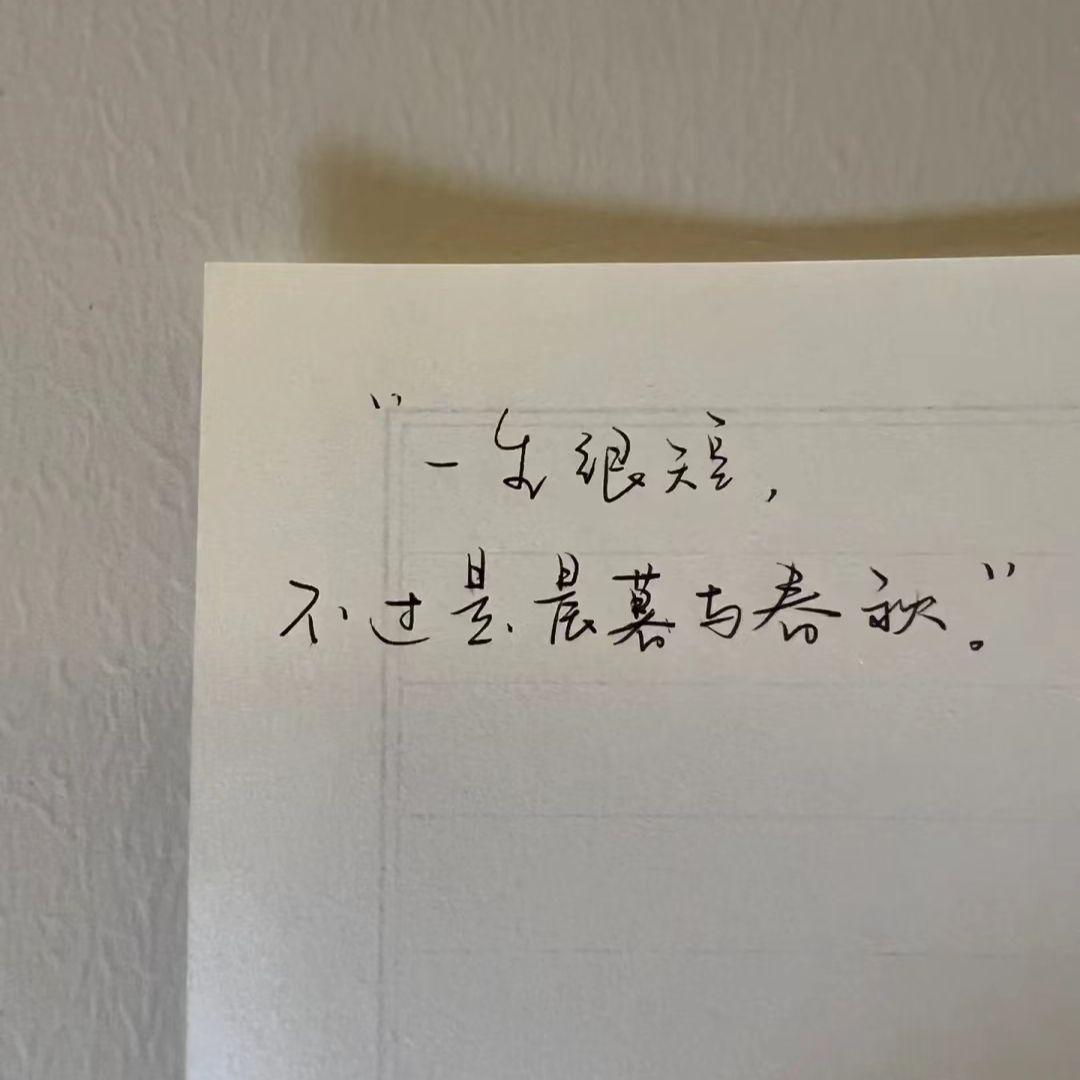 “一生很短，
不过是晨暮与春秋。”